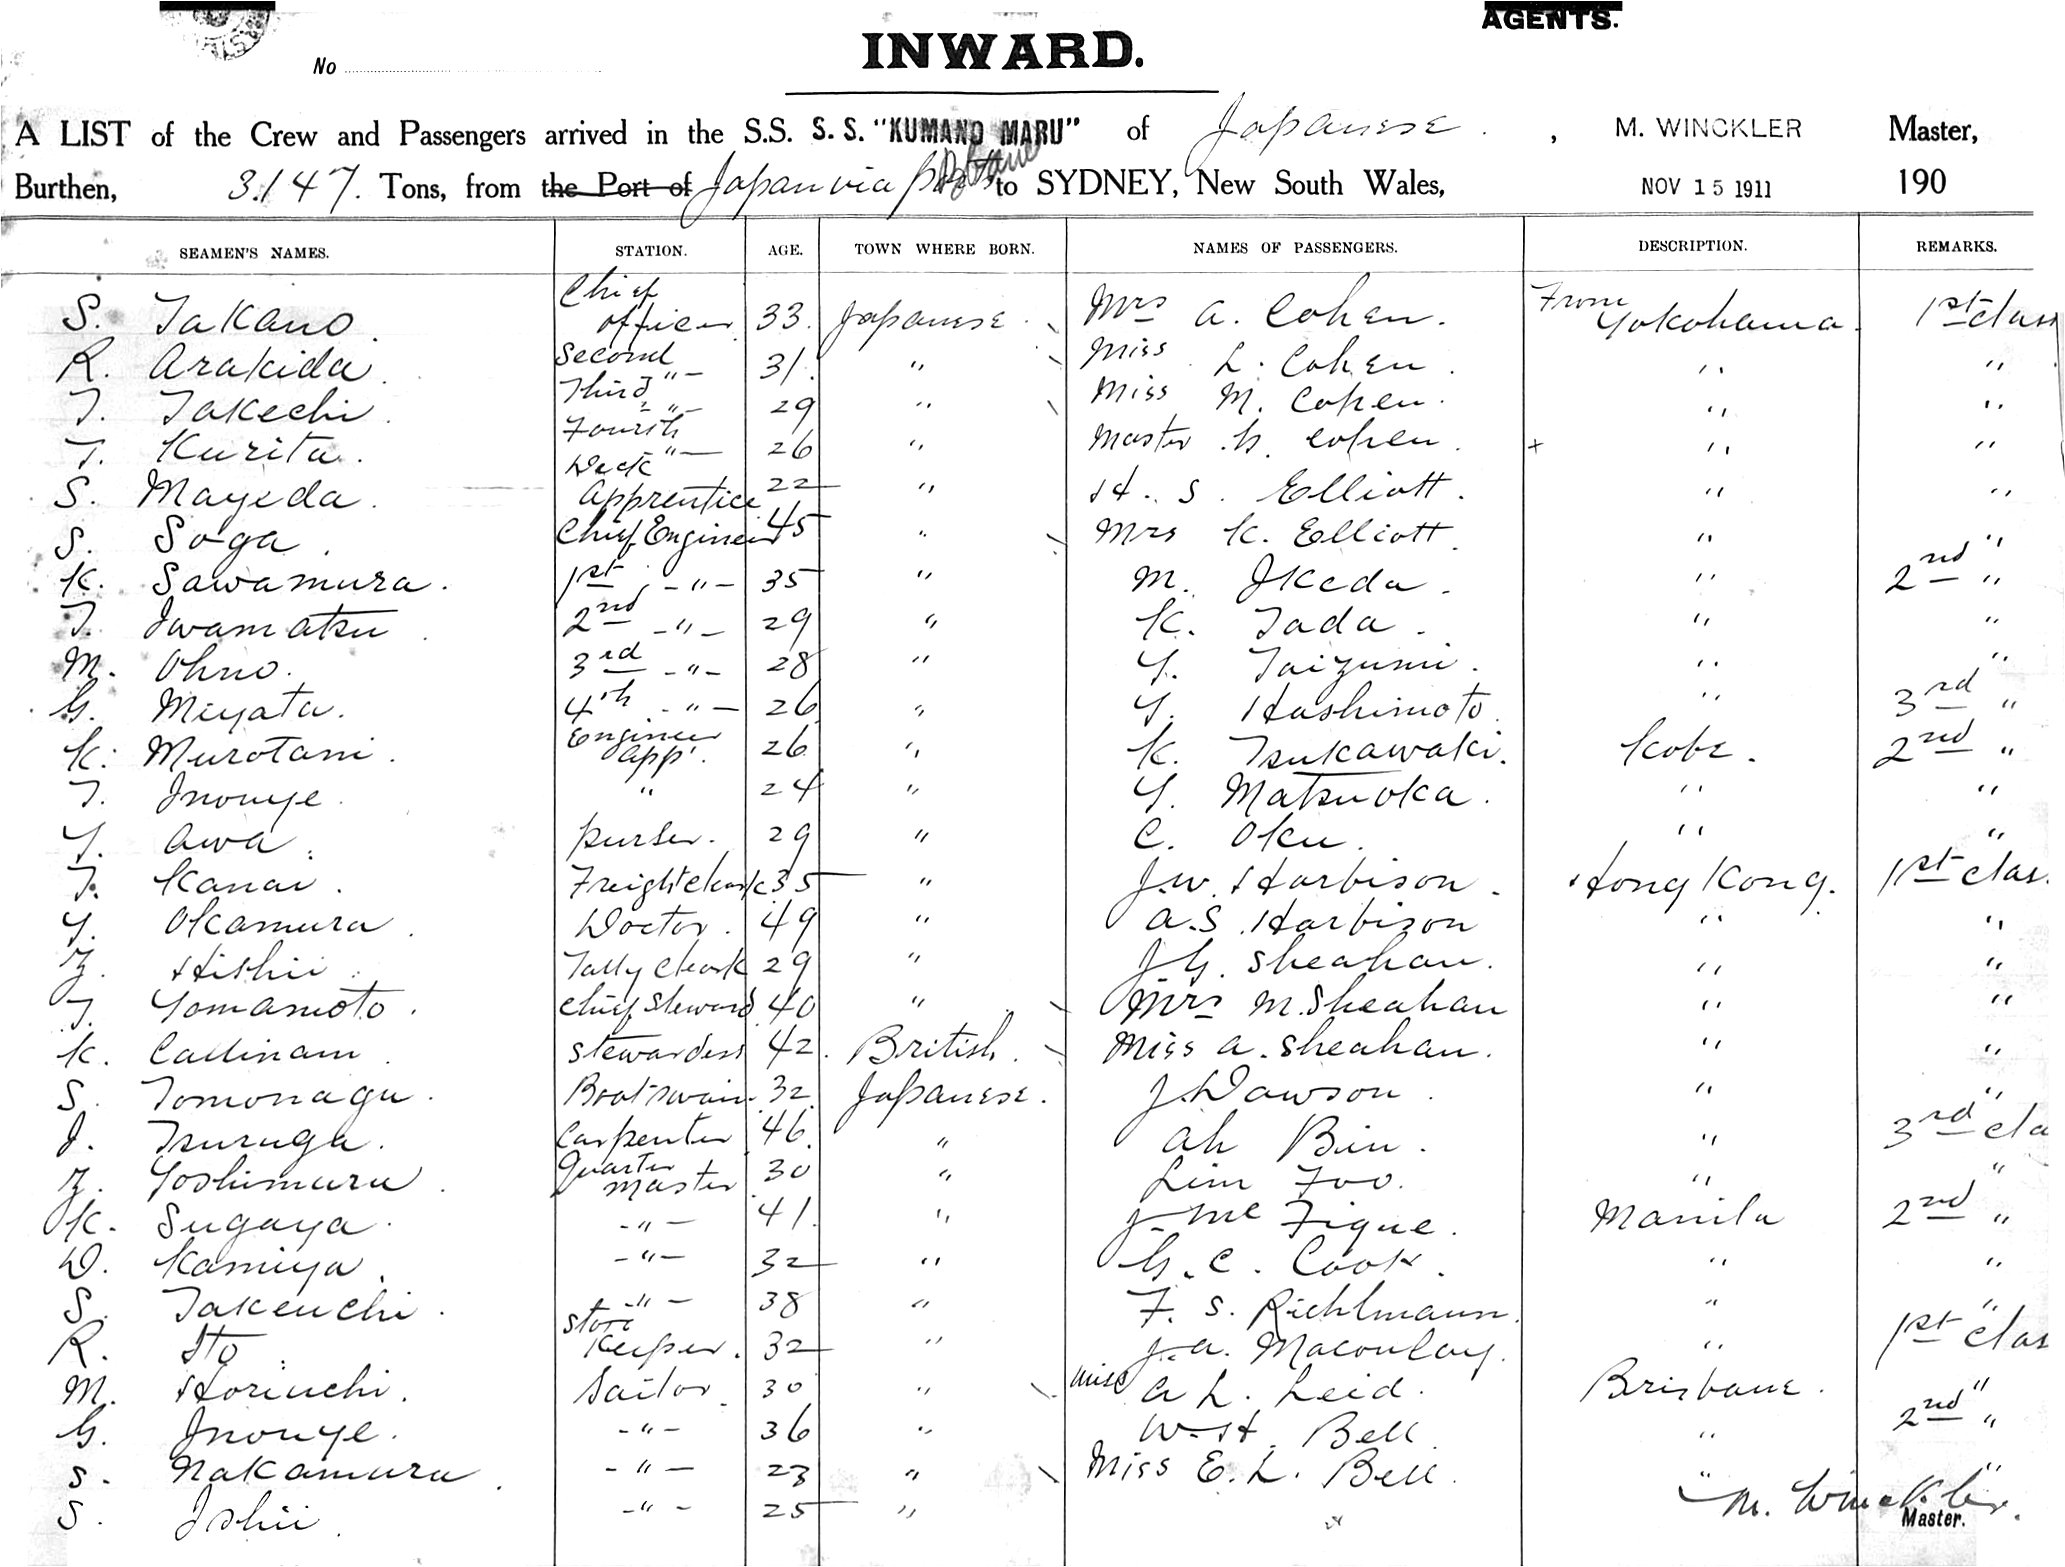 AGENTS.
INWARD.
No
A LIST of the Crew and Passengers arrived in the S.S. S. S. "KUMANO MARU" of Japanese. , M. WINCKLER Master,
Burthen, 3.147. Tons, from the Port of Japan via Brisbane to SYDNEY, New South Wales, NOV 15 1911 190
SEAMEN'S NAMES. STATION. AGE. TOWN WHERE BORN. NAMES OF PASSENGERS. DESCRIPTION. REMARKS.
S. Takano. Chief officer 33. Japanese. Mrs A. Cohen. From Yokohama. 1st class
R. Arakida. Second -"- 31. " Miss L. Cohen. " "
T. Takechi. Third -"- 29 " Miss M. Cohen. " "
T. Kurita. Fourth -"- 26 " Master G. Cohen. + " "
S. Mayeda. Deck apprentice 22 " H. S. Elliott. " "
S. Soga. Chief Engineer 45 " Mrs K. Elliott. " "
K. Sawamura. 1st -"- 35 " M. Ikeda. " 2nd "
T. Iwamatsu. 2nd -"- 29 " K. Tada. " "
M. Ohno. 3rd -"- 28 " Y. Taizumi. " "
G. Miyata. 4th -"- 26 " Y. Hashimoto. " 3rd "
K. Murotani. Engineer app'. 26 " K. Tsukawaki. Kobe. 2nd "
T. Inouye. " 24 " Y. Matsuoka. " "
Y. Awa. purser. 29 " C. Oku. " "
T. Kanai. Freight clerk 35 " J.W. Harbison. Hong Kong. 1st clas
Y. Okamura. Doctor. 49 " A.S. Harbison " "
Z. Hishii. Tally clerk 29 " J.G. Sheahan. " "
T. Yomamoto. Chief Steward 40 " Mrs M. Sheahan " "
K. Callinam. Stewardess 42. British. Miss A. Sheahan. " "
S. Tomonaga. Boatswain. 32 Japanese. J. Dawson. " "
I. Tsuruga. Carpenter 46. " Ah Bin. " 3rd cla
Z. Yoshimura. Quarter master 30 " Lim Foo. " "
K. Sugaya. -"- 41. " J. Mc Figue. Manila 2nd "
D. Kamiya. -"- 32 " G. C. Cook. " "
S. Takeuchi. -"- 38 " F. S. Richlmann. " "
R. Ito. Store Keeper. 32 " J. A. Macoulay. " 1st clas
M. Horiuchi. Sailor. 30 " Miss A L. Leid. Brisbane. "
G. Inouye. -"- 36 " W. H. Bell. " 2nd "
S. Nakamura. -"- 23 " Miss E. L. Bell. " "
S. Ishii. -"- 25 " " M. Winckler.
Master.